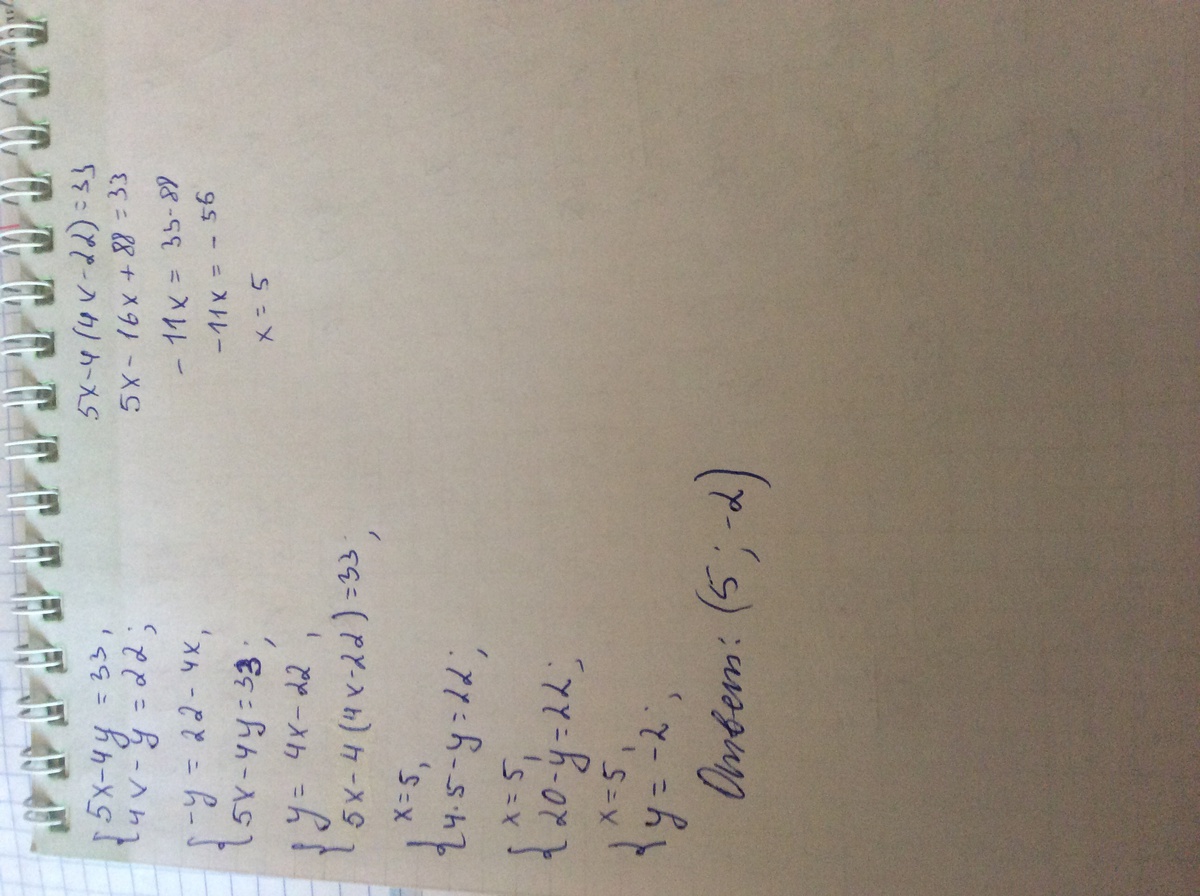 { 5x-4y = 33,
4x-y = 22;
{ -y = 22-4x,
5x-4y=33;
{ y = 4x-22,
5x-4(4x-22)=33;
{ x=5,
4·5-y=22;
{ x=5,
20-y=22;
{ x=5,
y=-2;
Ответ: (5; -2)
5x-4(4x-22)=33
5x-16x+88=33
-11x = 33-88
-11x = -56
x = 5